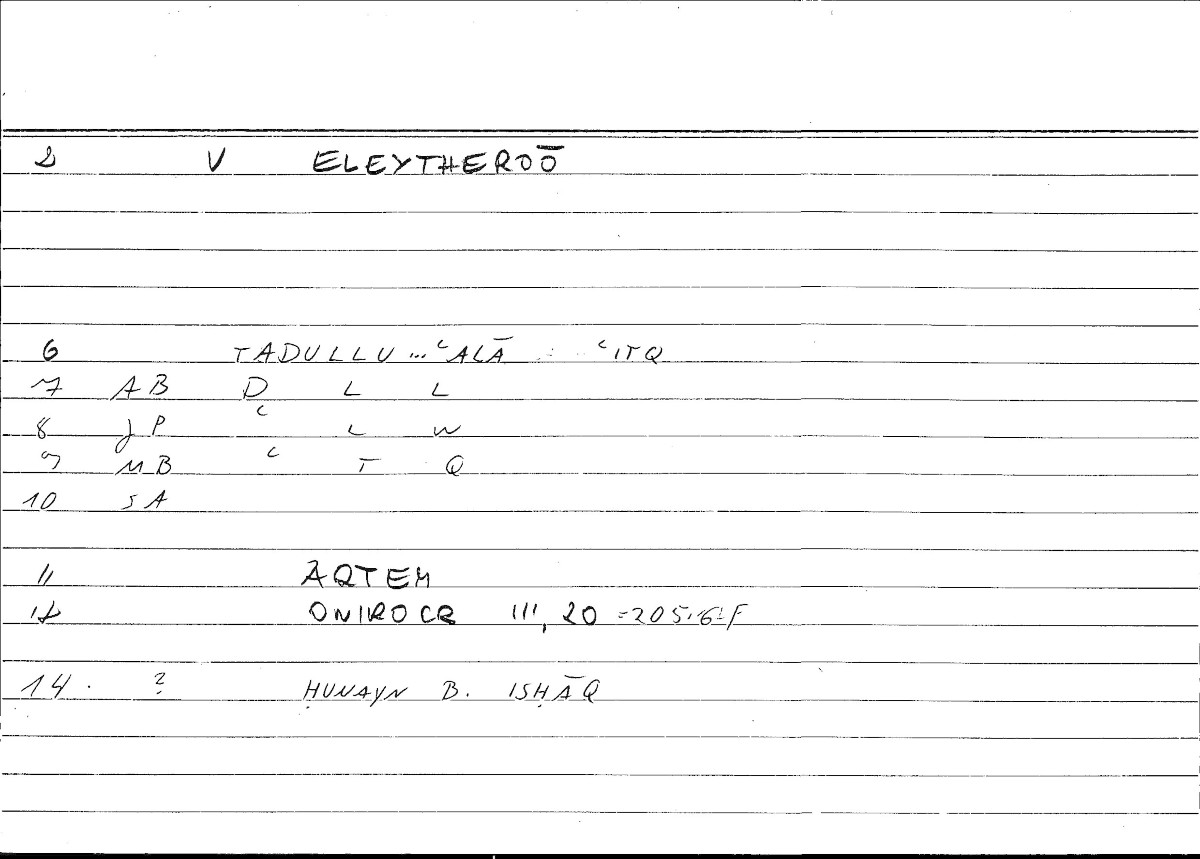 2 V ELEYTHEROŌ
6 TADULLU ... ʿALĀ ʿITQ
7 AB D L L
8 JP ʿ L W
9 MB ʿ T Q
10 SA
11 ARTEM
12 ONIROCR III, 20 = 205,6f
14. ? ḤUNAYN B. ISḤĀQ